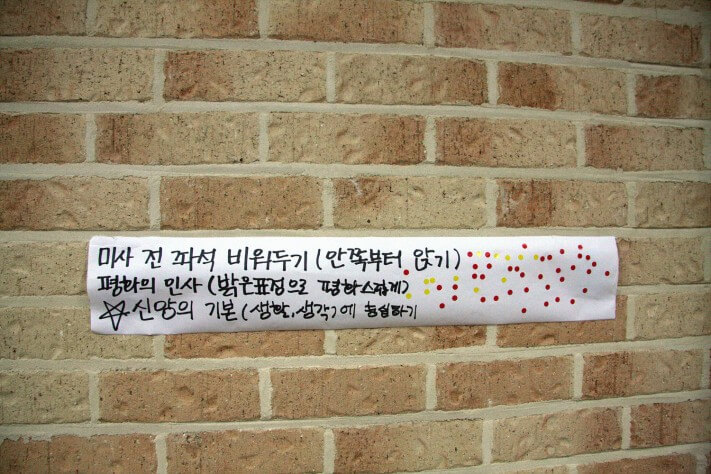 미사 전 좌석 비워두기 (안쪽부터 앉기)
평화의 인사 (밝은표정으로 평화스럽게)
☆ 신앙의 기본 (생활, 생각)에 충실하기